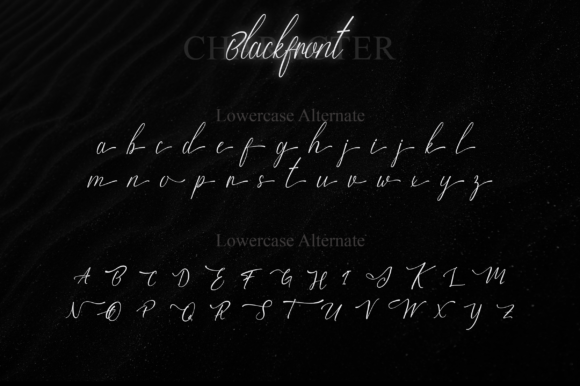 CHARACTER
Blackfront
Lowercase Alternate
a b c d e f g h j i j k l
m n o p n s t u v w x y z
Lowercase Alternate
A B C D E F G H I J K L M
N O P Q R S T U V W X Y Z